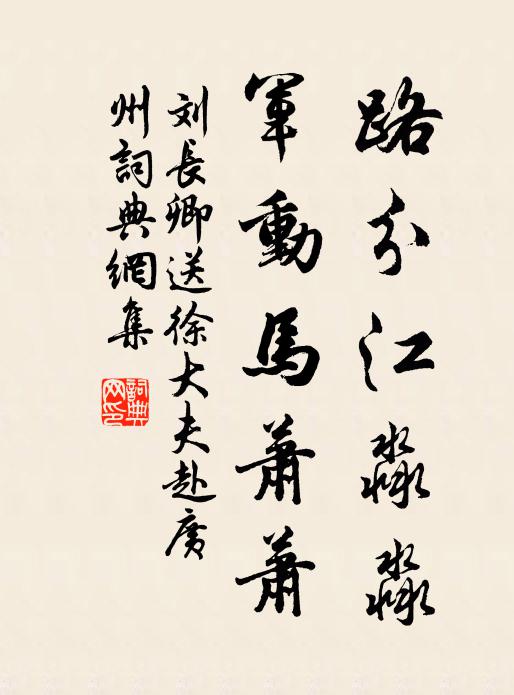 路分江淼淼
軍動馬蕭蕭
刘長卿送徐大夫赴廣
州詞典網集
詞典網印